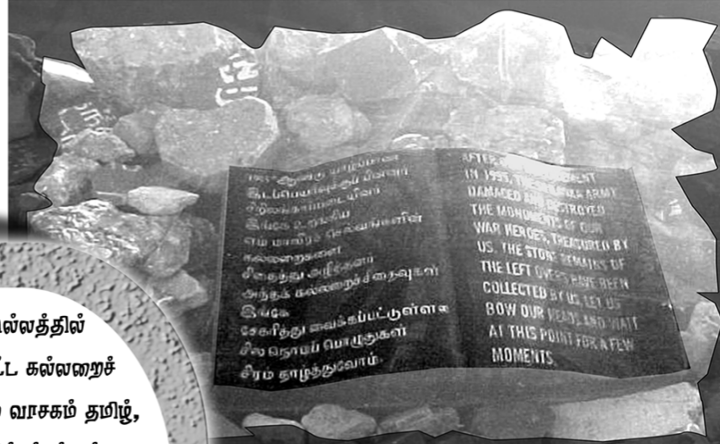 1995 ஆண்டு யாழ்ப்பாண
இடப்பெயர்வுக்குப் பின்னர்
சிறிலங்காப்படையினர்
இங்கே உறங்கிய
எம் மாவீரச் செல்வங்களின்
கல்லறைகளை
சிதைத்து அழித்தனர்
அந்தக் கல்லறைச்சிதைவுகள்
இங்கே
சேகரித்து வைக்கப்பட்டுள்ளன
சில நொடிப் பொழுதுகள்
சிரம் தாழ்த்துவோம்.
AFTER
IN 1995, THE ARMY
DAMAGED AND DESTROYED
THE MONUMENTS OF OUR
WAR HEROES, TREASURED BY
US. THE STONE REMAINS OF
THE LEFT OVERS HAVE BEEN
COLLECTED BY US, LET US
BOW OUR HEADS AND WAIT
AT THIS POINT FOR A FEW
MOMENTS.
ல்லத்தில்
ட்ட கல்லறைச்
வாசகம் தமிழ்,